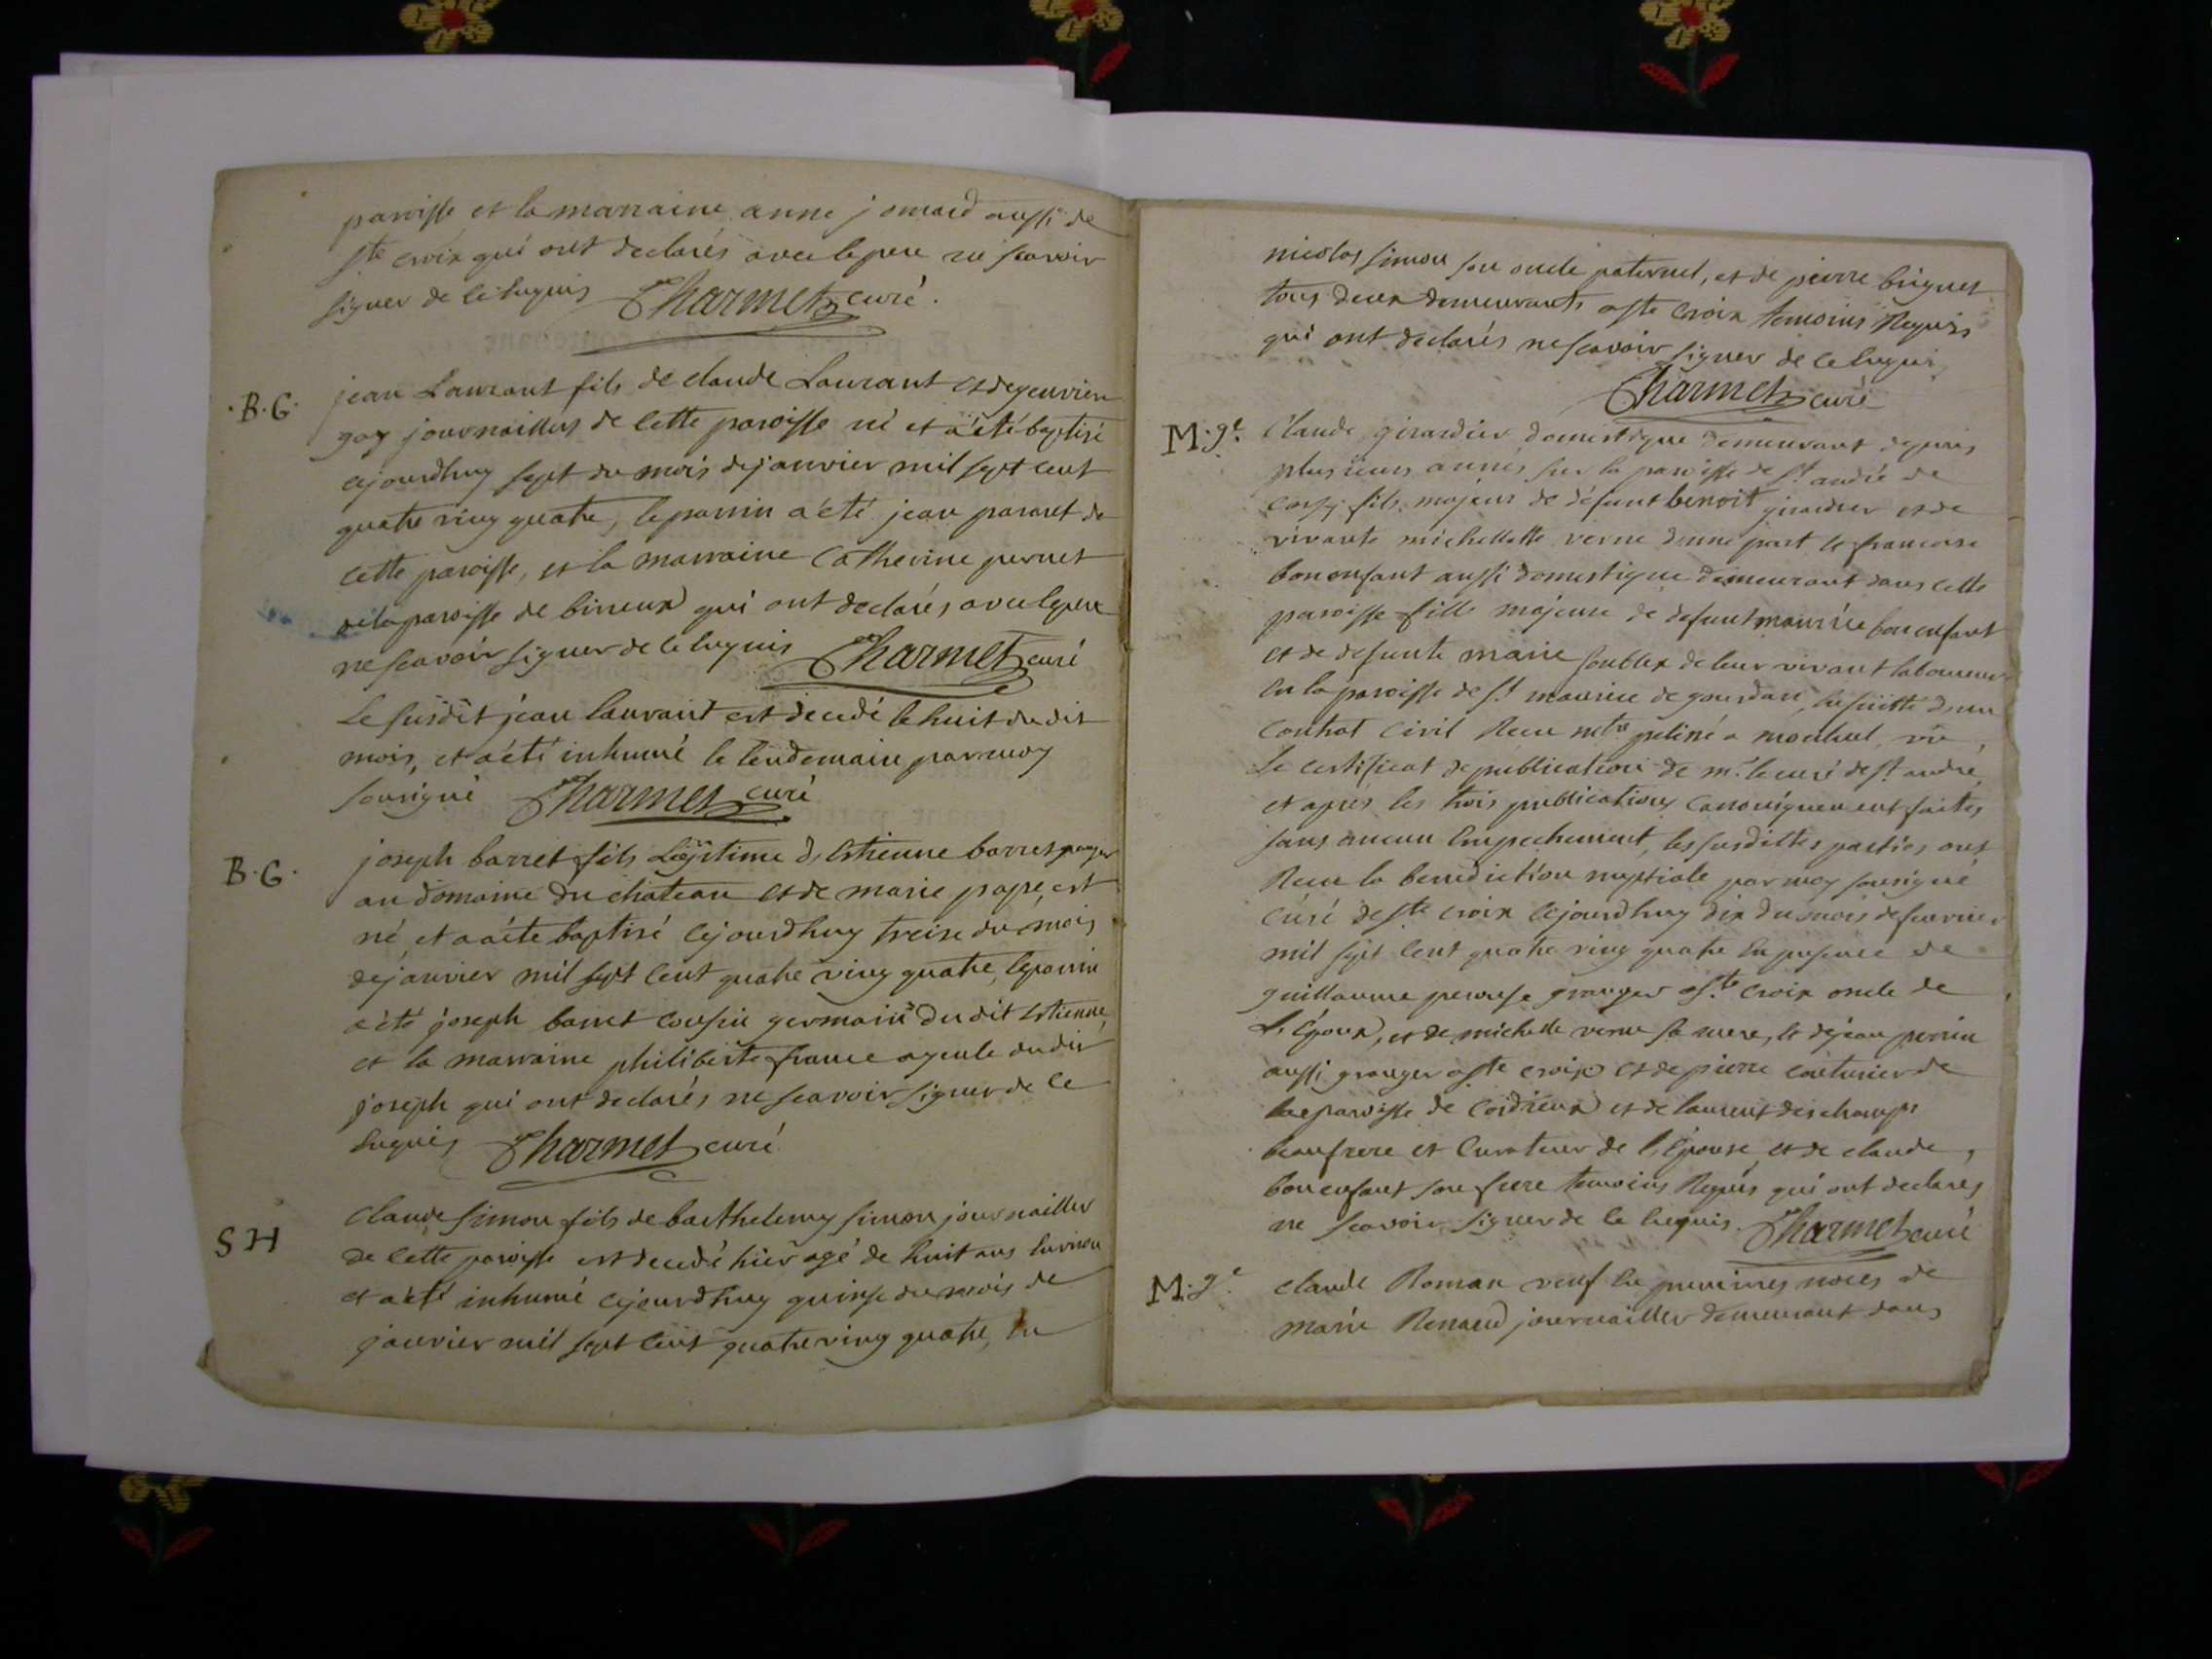 paroisse et la marraine anne jomard aussi de
ste croix qui ont declarés avec le pere ne scavoir
signer de ce enquis Charmet curé.
B.G. jean Laurant fils de claude Laurant et de
gay journaillier de cette paroisse né et a été baptisé
cejourdhuy sept du mois de janvier mil sept cent
quatre ving quatre, le parrin a été jean de
cette paroisse, et la marraine Catherine pernet
de la paroisse de birieux qui ont declarés avec le pere
ne scavoir signer de ce enquis Charmet curé
Le susdit jean laurant est decedé le huit du dit
mois, et a été inhumé le lendemain par moy
sousigné Charmet curé
B.G. joseph barret fils Legitime de Estienne barret granger
au domaine du chateau et de marie pape, est
né et a été baptisé cejourdhuy treise du mois
de janvier mil sept cent quatre ving quatre, le parrin
a été joseph barret cousin germain du dit Estienne,
et la marraine philiberte france ayeule du dit
joseph qui ont declarés ne scavoir signer de ce
enquis Charmet curé
SH claude simon fils de barthelemy simon journaillier
de cette paroisse est decedé hier agé de huit ans environ
et a été inhumé cejourdhuy quinse du mois de
janvier mil sept cent quatre ving quatre, en
nicolas simon son oncle paternel, et de pierre briguet
tous deux demeurants a ste Croix temoins Requis
qui ont declarés ne scavoir signer de ce enquis
Charmet curé
M.ge. Claude girardier domestique demeurant depuis
plusieurs années sur la paroisse de st. andré de
corsy fils majeur de défunt benoit girardier et de
vivante michellette verne d'une part et francoise
bonenfant aussi domestique demeurant dans cette
paroisse fille majeure de defunt maurice bonenfant
et de defunte marie de leur vivant laboureurs
en la paroisse de st. maurice de gourdan, ensuitte d'un
contrat civil Receu mtre a monluel, vû
Le certificat de publication de mr. le curé de st. andré,
et apres les trois publications canoniquement faites
sans aucun Empechement, les susdittes parties ont
Receu la benediction nuptiale par moy sousigné
curé de ste croix cejourdhuy dix du mois de fevrier
mil sept cent quatre ving quatre En presence de
guillaume granger a ste. croix oncle de
L'Epoux, et de michelle verne sa mere, et de jean perrin
aussi granger a ste croix et de pierre couturier de
la paroisse de Cordieux et de laurent deschamps
beaufrere et Curateur de l'Epouse, et de claude
bonenfant son frere temoins Requis qui ont declarés
ne scavoir signer de ce enquis. Charmet curé
M.ge. claude Roman veuf en premieres noces de
marie Renaud journaillier demeurant dans